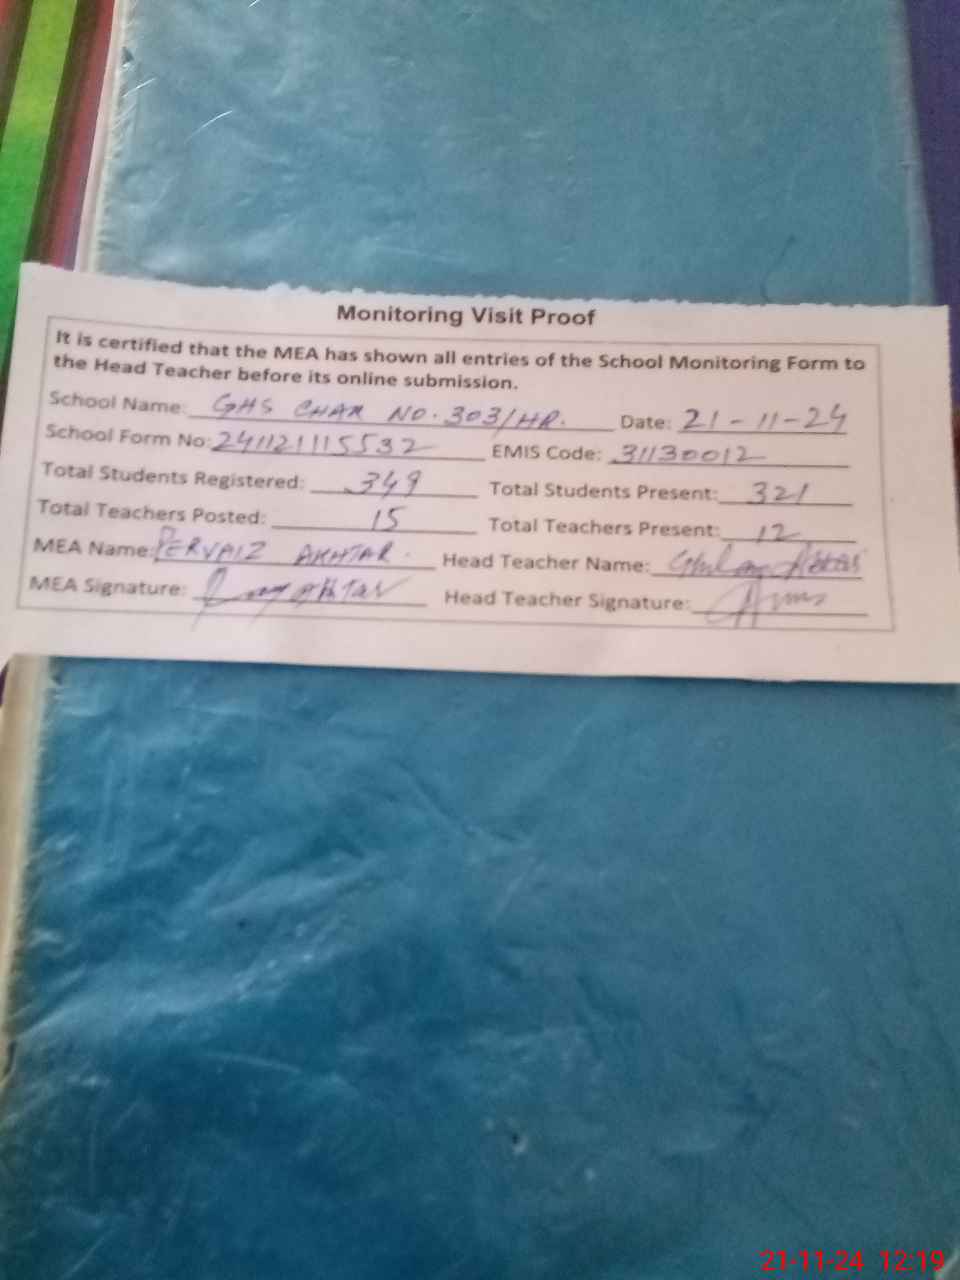 Monitoring Visit Proof
It is certified that the MEA has shown all entries of the School Monitoring Form to
the Head Teacher before its online submission.
School Name: GHS CHAK NO. 303/HR. Date: 21-11-24
School Form No: 241121115532 EMIS Code: 31130012
Total Students Registered: 349 Total Students Present: 321
Total Teachers Posted: 15 Total Teachers Present: 12
MEA Name: PERVAIZ AKHTAR. Head Teacher Name: Ghulam Abbas
MEA Signature: Head Teacher Signature:
21-11-24 12:19